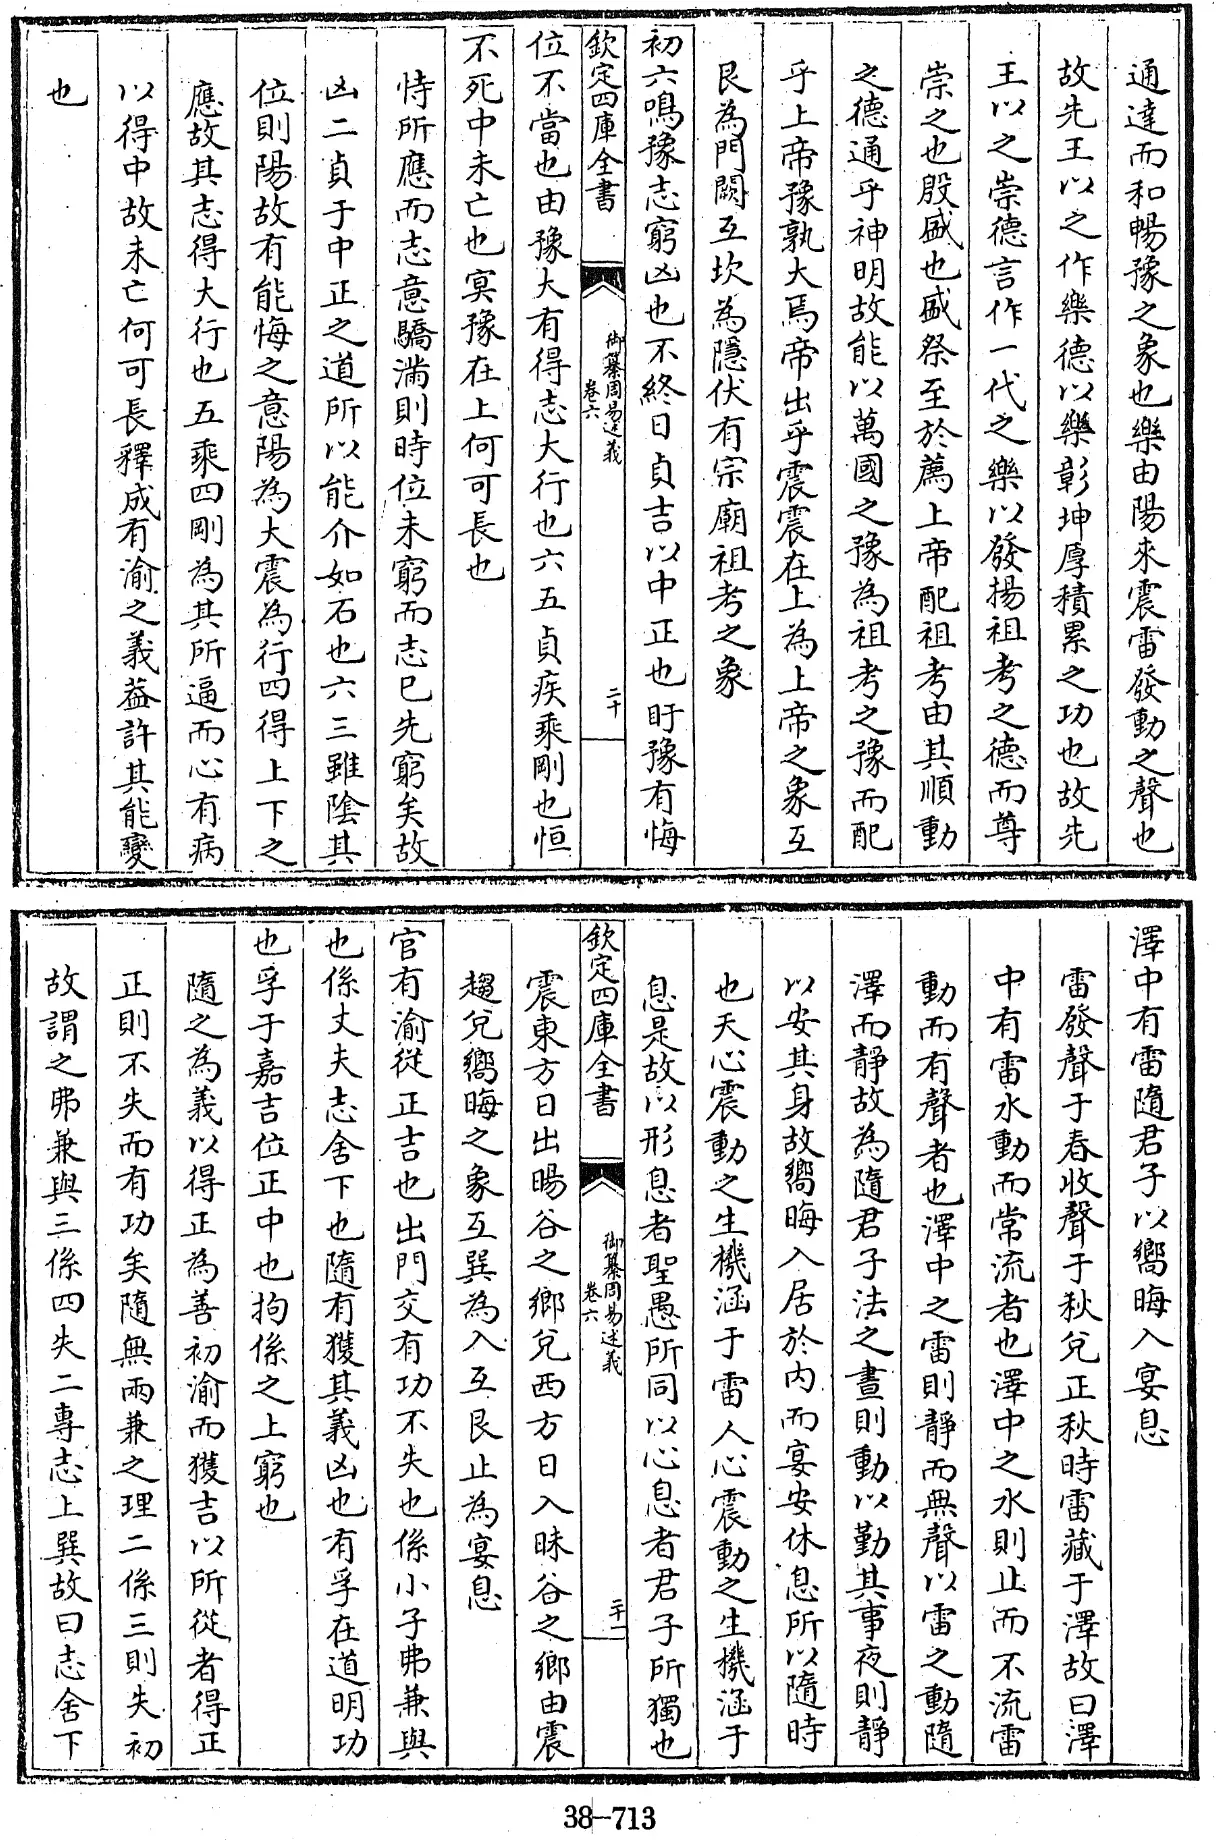 通達而和暢豫之象也樂由陽來震雷發動之聲也
故先王以之作樂德以樂彰坤厚積累之功也故先
王以之崇德言作一代之樂以發揚祖考之德而尊
崇之也殷盛也盛祭至於薦上帝配祖考由其順動
之德通乎神明故能以萬國之豫為祖考之豫而配
乎上帝豫孰大焉帝出乎震震在上為上帝之象互
艮為門闕互坎為隱伏有宗廟祖考之象
初六鳴豫志窮凶也不終日貞吉以中正也盱豫有悔
欽定四庫全書
御纂周易述義
卷六
二十
位不當也由豫大有得志大行也六五貞疾乘剛也恒
不死中未亡也冥豫在上何可長也
恃所應而志意驕滿則時位未窮而志已先窮矣故
凶二貞于中正之道所以能介如石也六三雖陰其
位則陽故有能悔之意陽為大震為行四得上下之
應故其志得大行也五乘四剛為其所逼而心有病
以得中故未亡何可長釋成有渝之義葢許其能變
也
澤中有雷隨君子以嚮晦入宴息
雷發聲于春收聲于秋兌正秋時雷藏于澤故曰澤
中有雷水動而常流者也澤中之水則止而不流雷
動而有聲者也澤中之雷則靜而無聲以雷之動隨
澤而靜故為隨君子法之晝則動以勤其事夜則靜
以安其身故嚮晦入居於內而宴安休息所以隨時
也天心震動之生機涵于雷人心震動之生機涵于
息是故以形息者聖愚所同以心息者君子所獨也
欽定四庫全書
御纂周易述義
卷六
二十一
震東方日出暘谷之鄉兌西方日入昧谷之鄉由震
趨兌嚮晦之象互巽為入互艮止為宴息
官有渝從正吉也出門交有功不失也係小子弗兼與
也係丈夫志舍下也隨有獲其義凶也有孚在道明功
也孚于嘉吉位正中也拘係之上窮也
隨之為義以得正為善初渝而獲吉以所從者得正
正則不失而有功矣隨無兩兼之理二係三則失初
故謂之弗兼與三係四失二專志上巽故曰志舍下
38-713